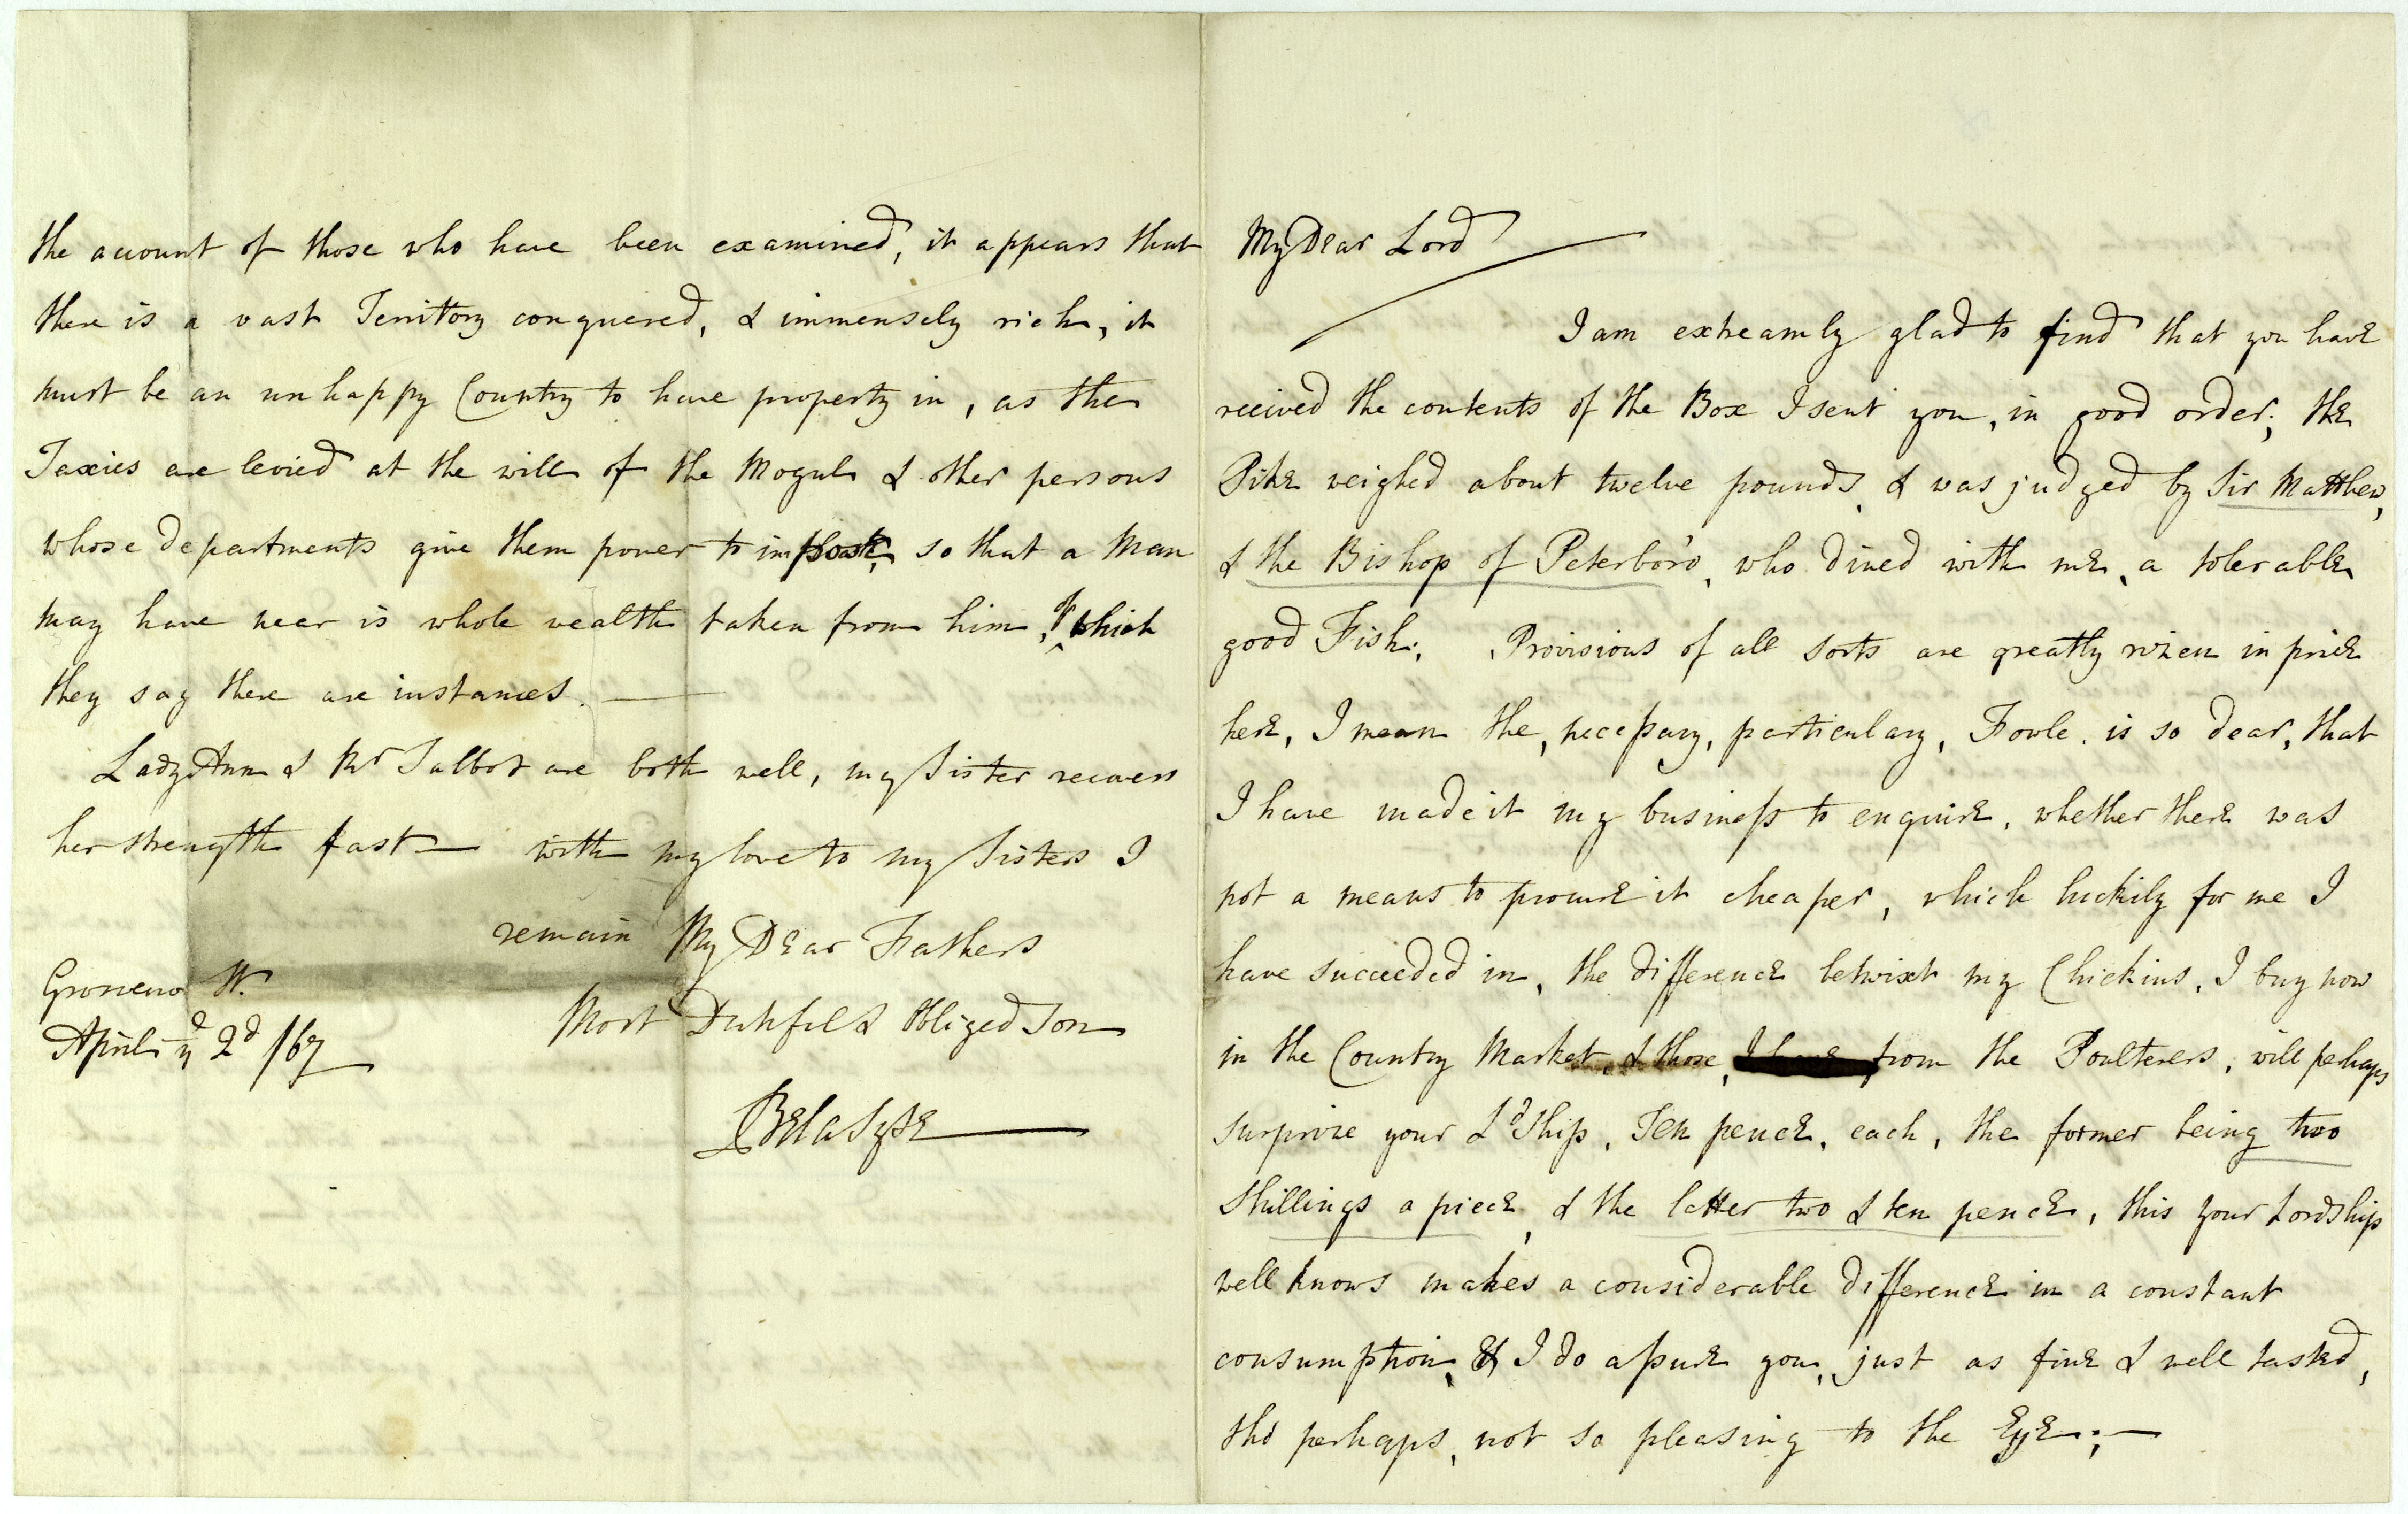 My Dear Lord
I am extreamly glad to find that you have
recived the contents of the Box I sent you, in good order; the
Pike weighed about twelve pounds, & was judged by Sir Matthew,
& the Bishop of Peterboro', who dined with me, a tolerable
good Fish. Provisions of all sorts are greatly rizen in price
here, I mean the, necessary, particulary, Fowle. is so dear, that
I have made it my business to enquire, whether there was
not a means to procure it cheaper, which luckily for me I
have succeeded in, the difference betwixt my Chickins, I buy now
in the Country Market, & those, from the Poulterers, will perhaps
surprize your Ldship, Ten pence, each, the former being two
Shillings a piece, & the latter two & ten pence, this your Lordship
well knows makes a considerable difference in a constant
consumption, & I do assure you, just as fine & well tasted,
tho' perhaps, not so pleasing to the Eye;—
the account of those who have been examined, it appears that
there is a vast Territory conquered, & immensely rich, it
must be an unhappy Country to have property in, as the
Taxies are levied at the will of the Mogul & other persons
whose departments give them power to so that a Man
may have near is whole wealth taken from him, of which
they say there are instances. —
Lady Ann & Mr Talbot are both well, my Sister recovers
her strength fast — with my love to my Sisters I
remain My Dear Fathers
Most Dutifull & Obliged Son
Belasyse
Grosvenor St.
April ye 2d /67